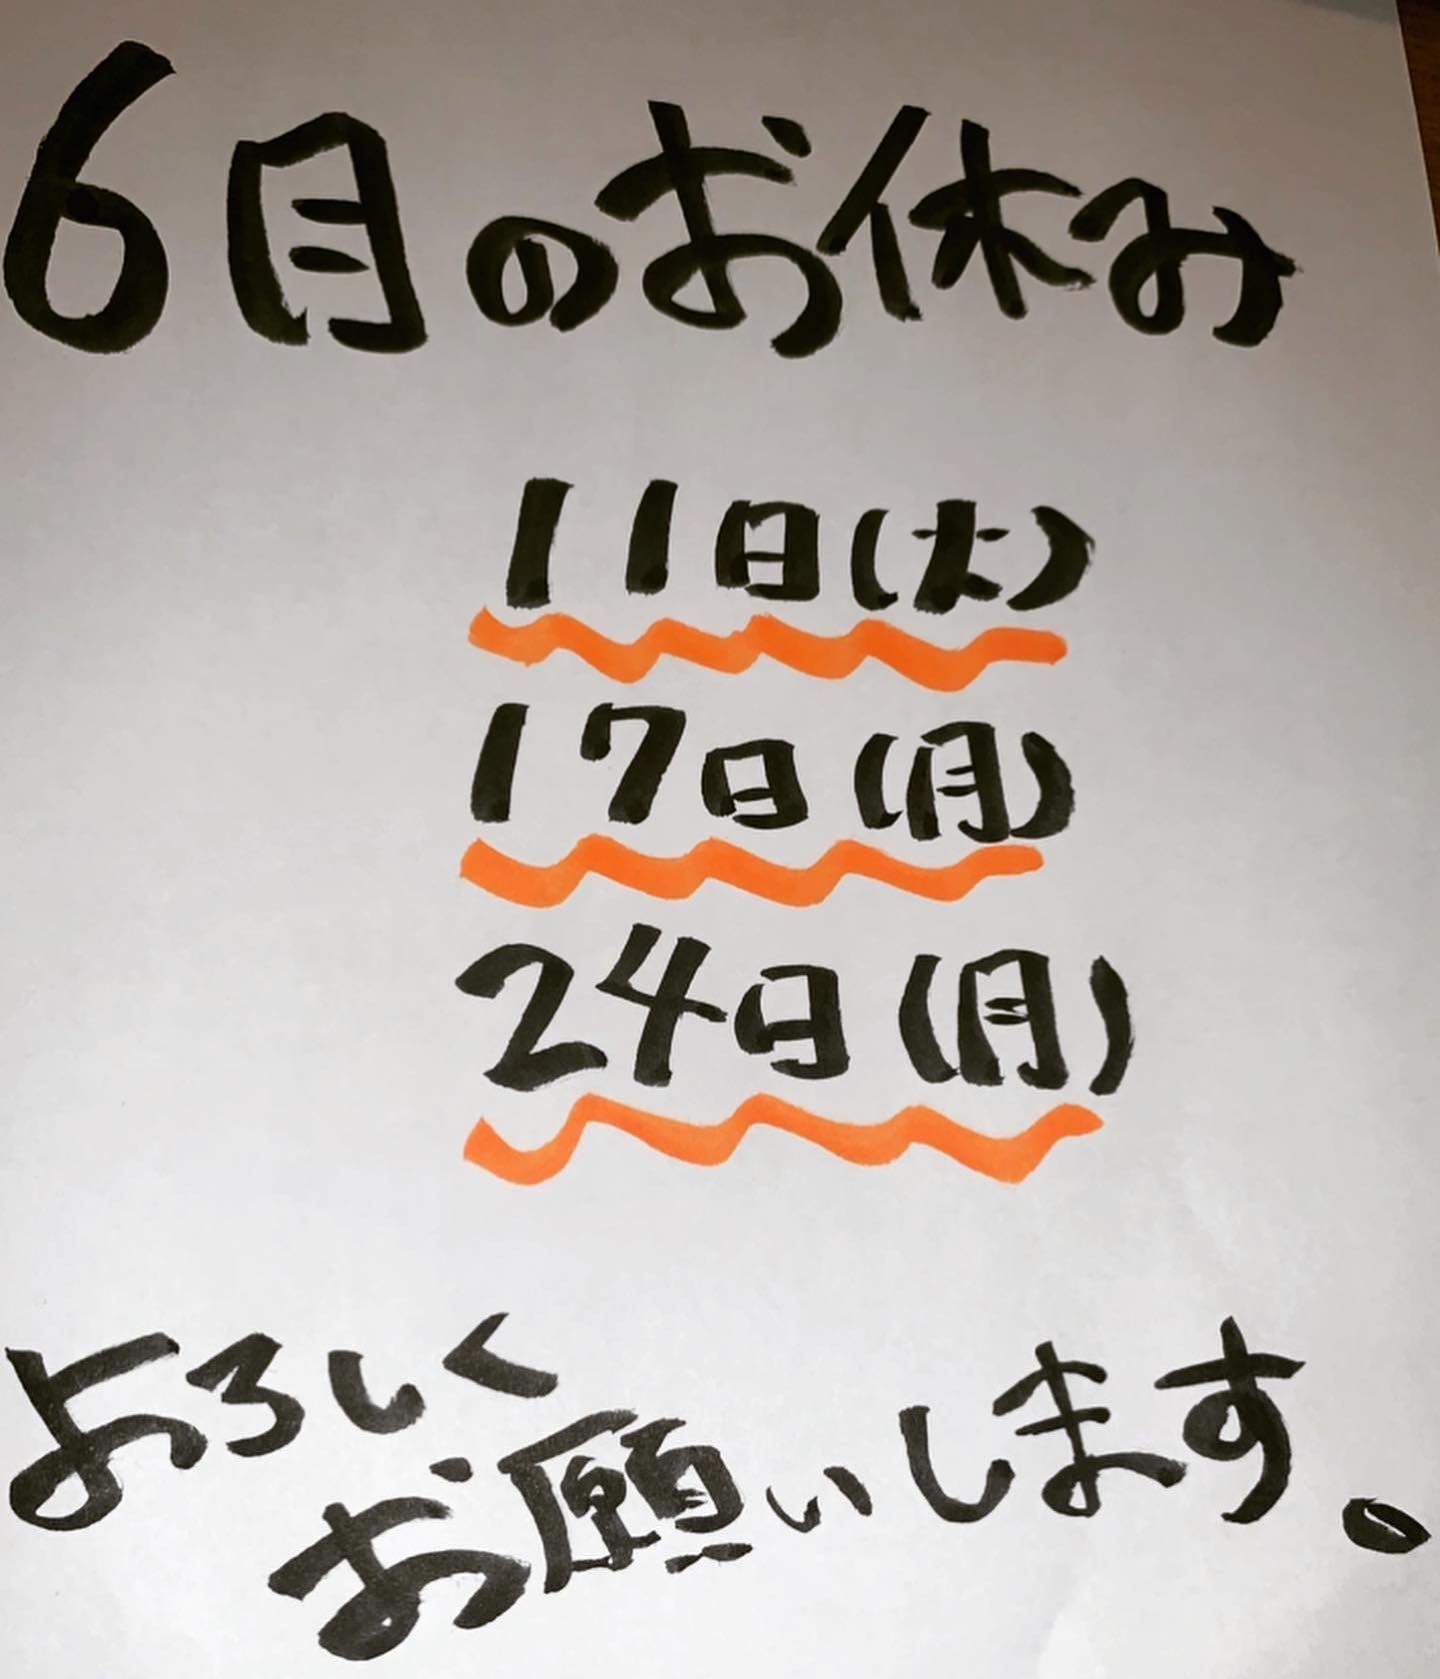 6月のお休み
11日(火)
17日(月)
24日(月)
よろしく
お願いします。